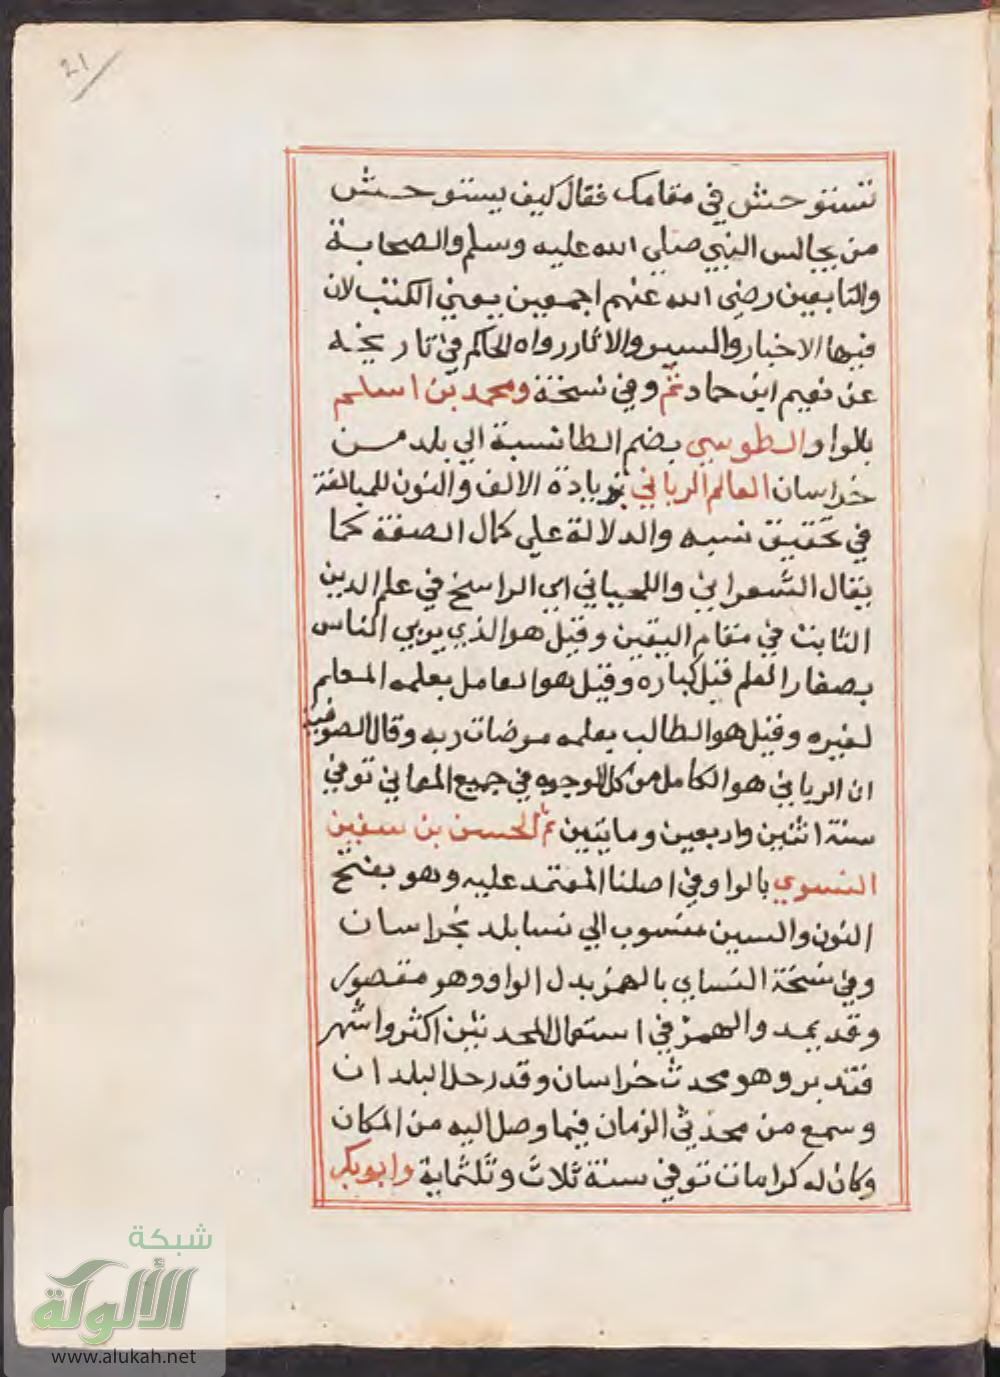 21
تستوحش في مقامك فقال كيف يستوحش
من يجالس النبي صلى الله عليه وسلم والصحابة
والتابعين رضي الله عنهم اجمعين يعني الكتب لان
فيها الاخبار والسير والاثار رواه الحاكم في تاريخه
عن نعيم ابن حماد ثم وفي نسخة ومحمد بن اسلم
بالواو الطوسي بضم الطا نسبة الي بلد من
خراسان العالم الرباني بزيادة الالف والنون للمبالغة
في تحقيق نسبه والدلالة علي كمال الصفة كما
يقال الشعراني واللحياني اي الراسخ في علم الدين
الثابت في مقام اليقين وقيل هو الذي يربي الناس
بصغار العلم قبل كباره وقيل هو العامل بعلمه المعلم
لغيره وقيل هو الطالب بعلمه مرضات ربه وقال الصوفية
ان الرباني هو الكامل من كل الوجوه في جميع المعاني توفي
سنة اثنين واربعين ومايتين ثم الحسن بن سفين
النسوي بالواو في اصلنا المعتمد عليه وهو بفتح
النون والسين منسوب الي نسا بلد بخراسان
وفي نسخة النساي بالهمز بدل الواو وهو مقصور
وقد يمد والهمز في استعمال المحدثين اكثر واشهر
فتدبر وهو محدث خراسان وقد رحل البلدان
وسمع من محدثي الزمان فيما وصل اليه من المكان
وكان له كرامات توفي سنة ثلاث وثلثماية وابو بكر
شبكة
الألوكة
www.alukah.net